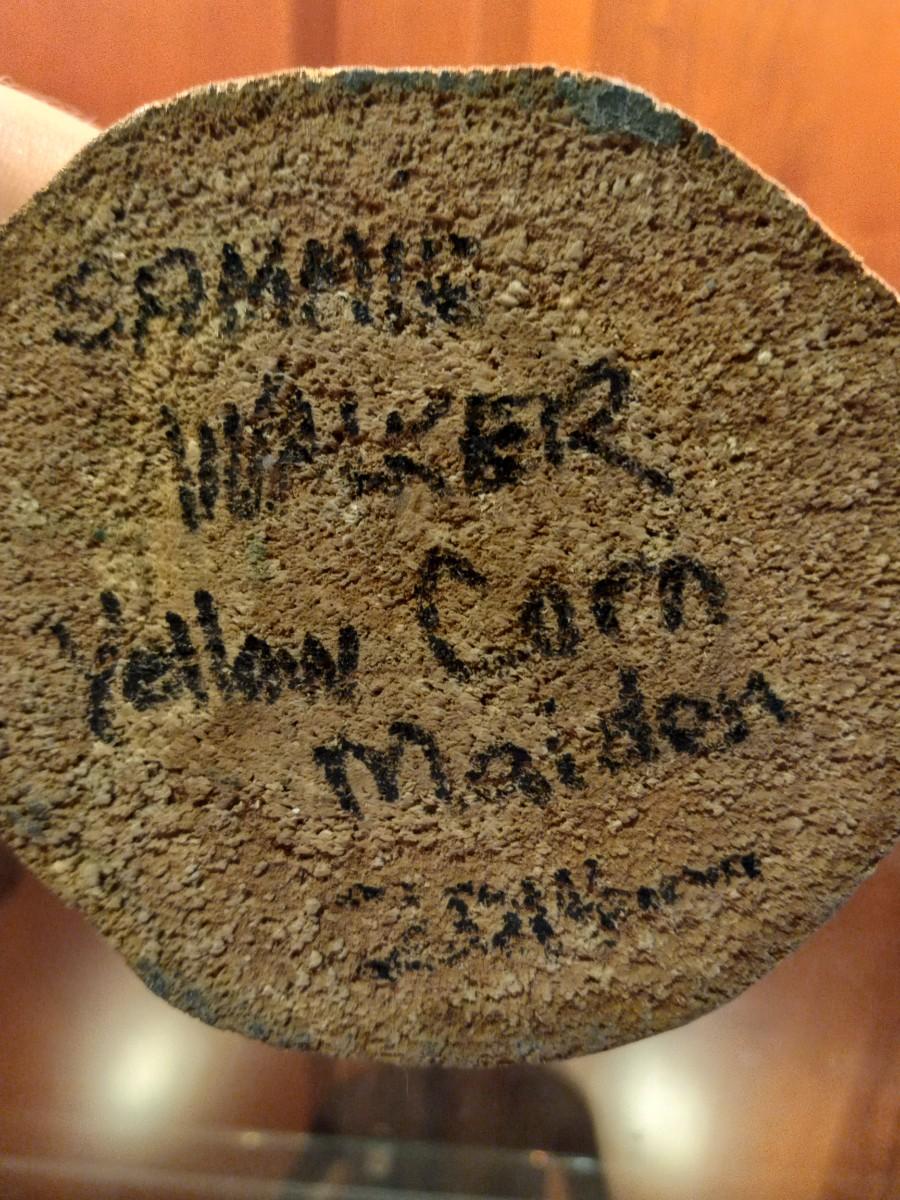 SAMMIE
WALKER
Yellow Corn
Maiden